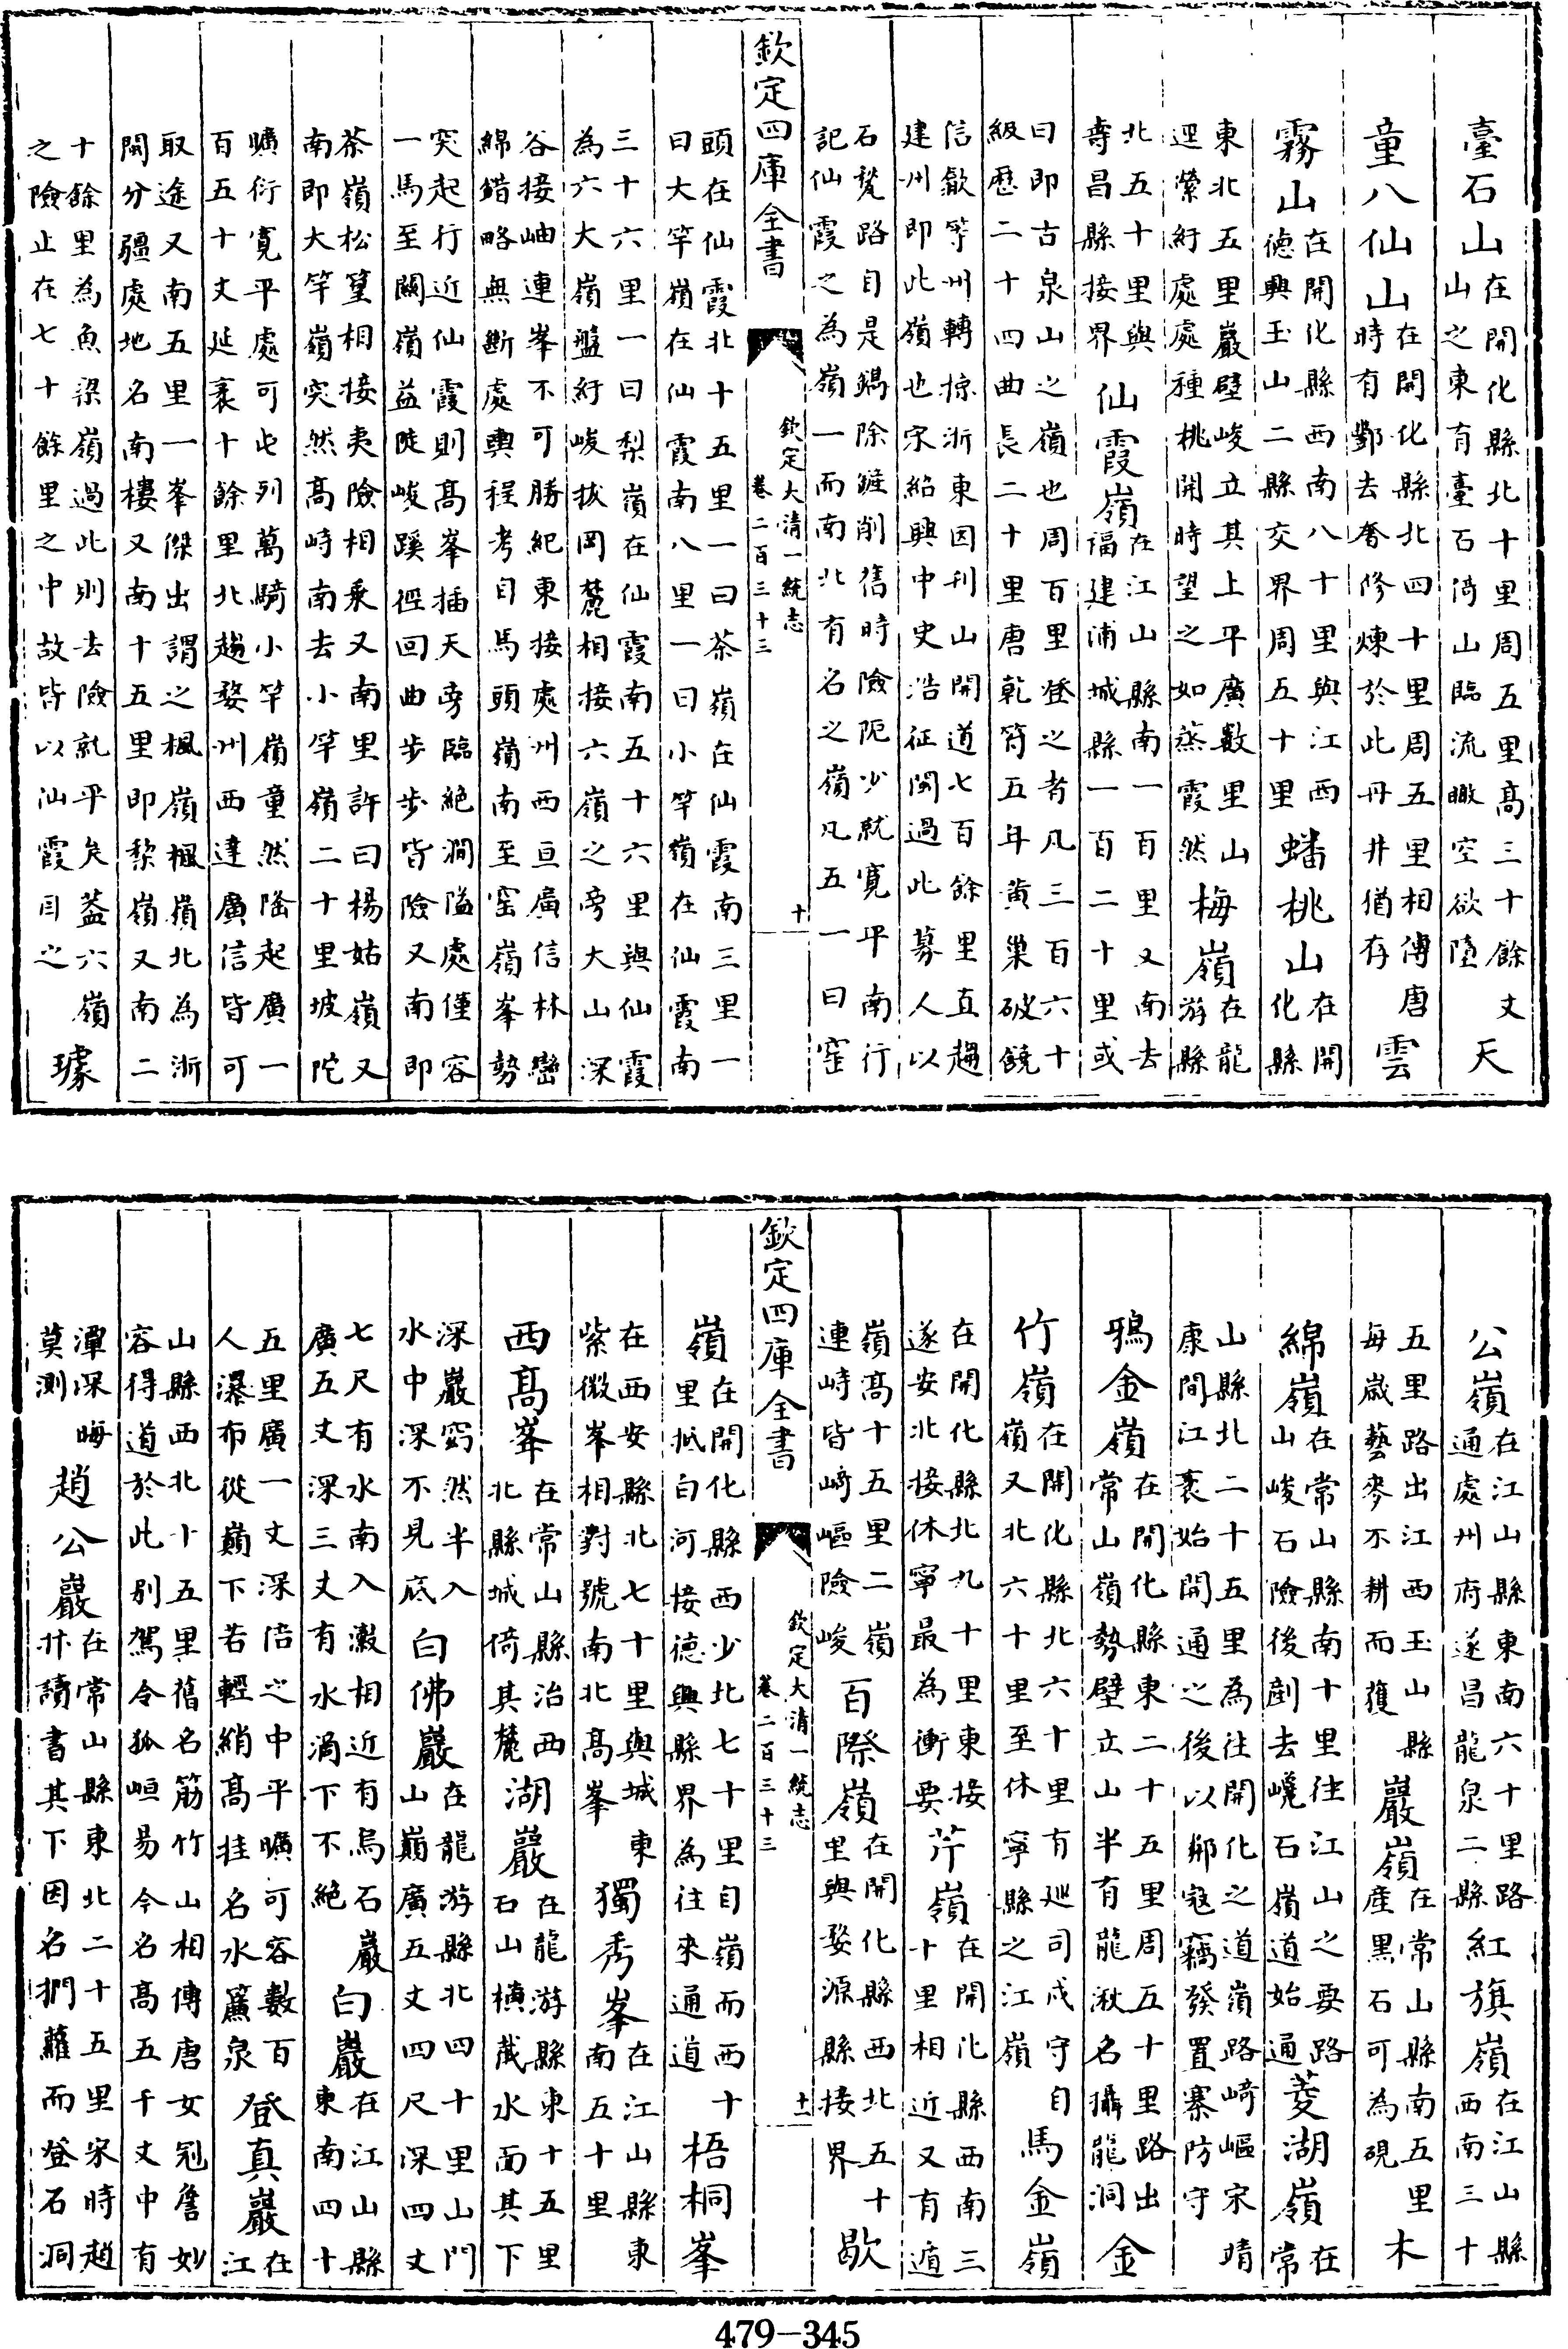 臺石山在開化縣北十里周五里高三十餘丈山之東有臺石倚山臨流瞰空欲墮天
童八仙山在開化縣北四十里周五里相傳唐時有鄧去奢修煉於此丹井猶存雲
霧山在開化縣西南八十里與江西德興玉山二縣交界周五十里蟠桃山在開化縣
東北五里巖壁峻立其上平廣數里山逕縈紆處處種桃開時望之如蒸霞然梅嶺在龍游縣
北五十里與壽昌縣接界仙霞嶺在江山縣南一百里又南去福建浦城縣一百二十里或
曰即古泉山之嶺也周百里登之者凡三百六十級歷二十四曲長二十里唐乾符五年黄巢破饒
信歙等州轉掠浙東因刋山開道七百餘里直趨建州即此嶺也宋紹興中史浩征閩過此募人以
石甃路自是鍋除鏟削舊時險阨少就寛平南行記仙霞之為嶺一而南北有名之嶺凡五一曰窑
欽定四庫全書
欽定大清一統志
卷二百三十三
十
頭在仙霞北十五里一曰茶嶺在仙霞南三里一曰大竿嶺在仙霞南八里一曰小竿嶺在仙霞南
三十六里一曰梨嶺在仙霞南五十六里與仙霞為六大嶺盤紆峻拔岡麓相接六嶺之旁大山深
谷接岫連峯不可勝紀東接處州西亘廣信林巒綿錯略無斷處輿程考自馬頭嶺南至窑嶺峯勢
突起行近仙霞則高峯插天旁臨絶澗隘處僅容一馬至關嶺益陡峻蹊徑回曲步步皆險又南即
茶嶺松篁相接夷險相乘又南里許曰楊姑嶺又南即大竿嶺突然高峙南去小竿嶺二十里坡陀
曠衍寛平處可屯列萬騎小竿嶺童然隆起廣一百五十丈延袤十餘里北趨婺州西達廣信皆可
取途又南五里一峯傑出謂之楓嶺楓嶺北為浙閩分疆處地名南樓又南十五里即黎嶺又南二
十餘里為魚梁嶺過此則去險就平矣葢六嶺之險止在七十餘里之中故皆以仙霞目之璩
公嶺在江山縣東南六十里路通處州府遂昌龍泉二縣紅旗嶺在江山縣西南三十
五里路出江西玉山縣每歲藝麥不耕而穫巖嶺在常山縣南五里產黑石可為硯木
綿嶺在常山縣南十里往江山之要路山峻石險後剷去嶢石嶺道始通菱湖嶺在常
山縣北二十五里為往開化之道嶺路崎嶇宋靖康間江袤始開通之後以鄰寇竊發置寨防守
鴉金嶺在開化縣東二十五里周五十里路出常山嶺勢壁立山半有龍湫名攝龍洞金
竹嶺在開化縣北六十里有廵司戍守自嶺又北六十里至休寧縣之江嶺馬金嶺
在開化縣北九十里東接遂安北接休寧最為衝要芹嶺在開化縣西南三十里相近又有遁
嶺高十五里二嶺連峙皆崎嶇險峻百際嶺在開化縣西北五十里與婺源縣接界歇
欽定四庫全書
欽定大清一統志
卷二百三十三
十一
嶺在開化縣西少北七十里自嶺而西十里抵白河接德興縣界為往來通道梧桐峯
在西安縣北七十里與城東紫微峯相對號南北高峯獨秀峯在江山縣東南五十里
西高峯在常山縣治西北縣城倚其麓湖巖在龍游縣東十五里石山橫截水面其下
深巖窈然半入水中深不見底白佛巖在龍游縣北四十里山門山巔廣五丈四尺深四丈
七尺有水南入瀫相近有烏石巖廣五丈深三丈有水滴下不絶白巖在江山縣東南四十
五里廣一丈深倍之中平曠可容數百人瀑布從巔下若輕綃高挂名水簾泉登真巖在江
山縣西北十五里舊名筋竹山相傳唐女冠詹妙容得道於此别駕令狐峘易今名高五千丈中有
潭深晦莫測趙公巖在常山縣東北二十五里宋時趙抃讀書其下因名捫蘿而登石洞
479-345